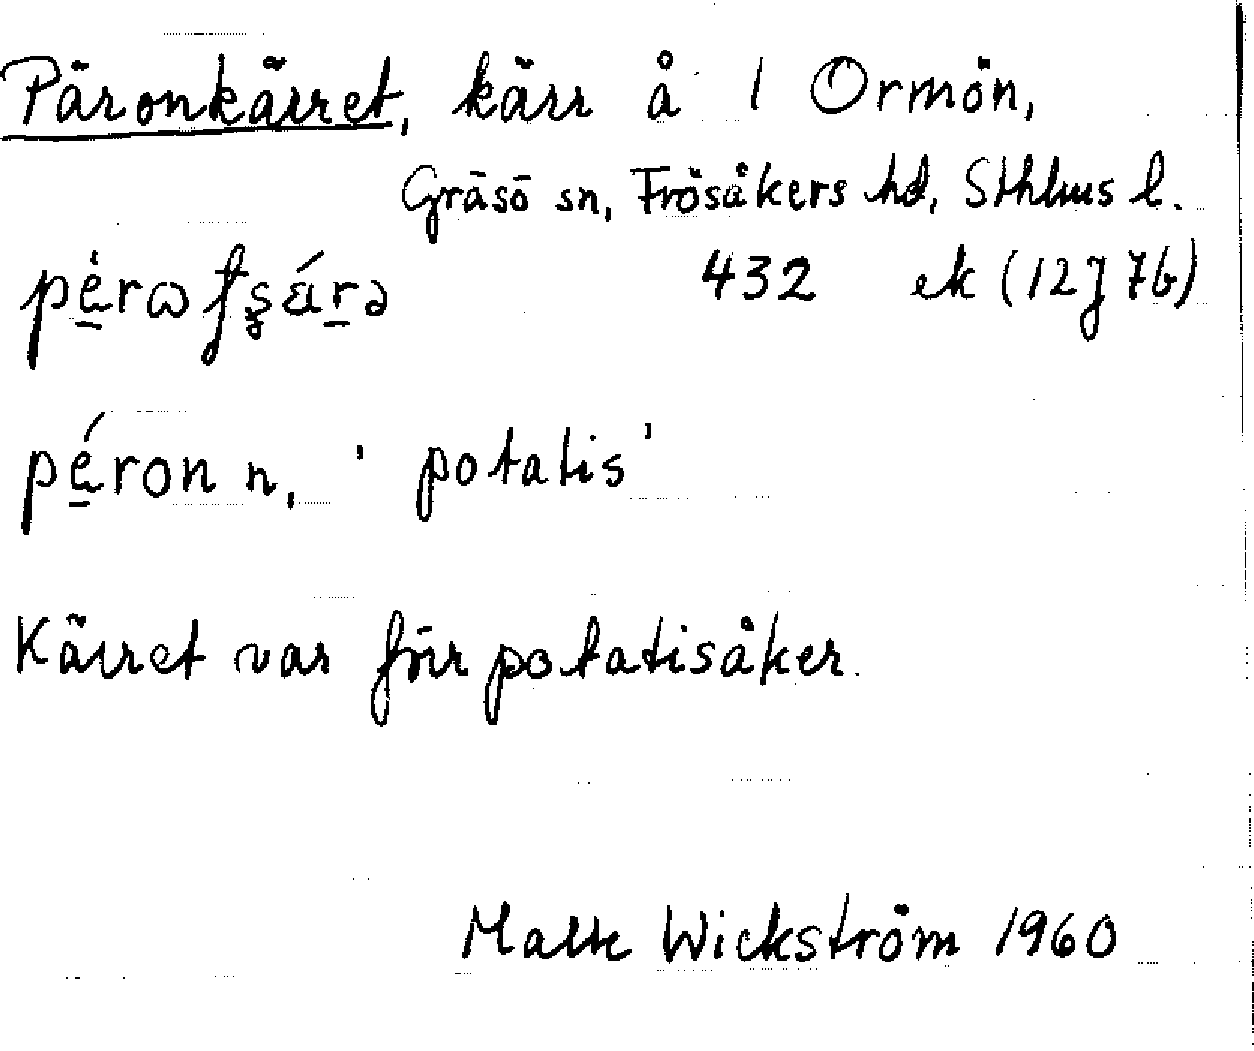 Päronkärret, kärr å 1 Ormön,
Gräsö sn, Frösåkers hd, Sthlms l.
432 ek (12J 7b)
péron n, ' potatis'
Kärret var förr potatisåker.
Malte Wickström 1960